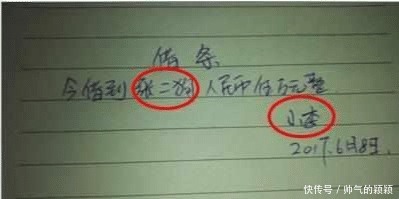 借条
今借到张二狗人民币伍万元整
小李
2017.6月8日.
快传号/帅气的颖颖